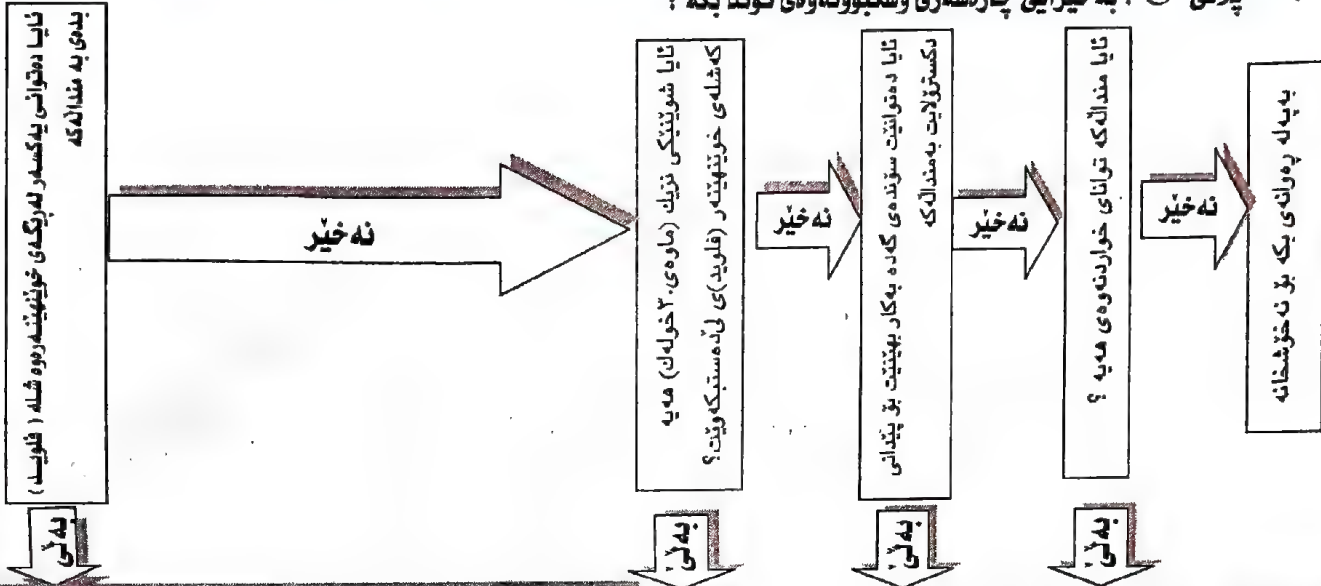 پلانی ، به خێرایی چارەسەری وشکبوونەوەی توند بکە ؟
ئایا دەتوانی یەکسەر لەڕێگەی خوێنهێنەرەوە شلە ( فلوید )
بدەی بە منداڵەکە
نەخێر
بەڵێ
ئایا شوێنێکی نزیك (ماوەی ٣٠ خولەك) هەیە
کەشلەی خوێنهێنەر (فلوید)ی لێدەستبکەوێت؟
نەخێر
بەڵێ
ئایا دەتوانێت سۆندەی گەدە بەکار بهێنێت بۆ پێدانی
دکسترۆلایت بەمنداڵەکە
نەخێر
بەڵێ
ئایا منداڵەکە توانای خواردنەوەی هەیە ؟
نەخێر
بەڵێ
بەپەلە ڕەوانەی بکە بۆ نەخۆشخانە